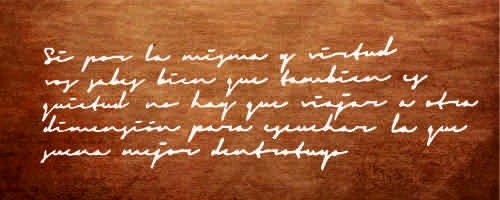 Si por la misma y virtud
vos sabes bien que tambien es
quietud no hay que viajar a otra
dimensión para escuchar la que
suena mejor dentrotuyo